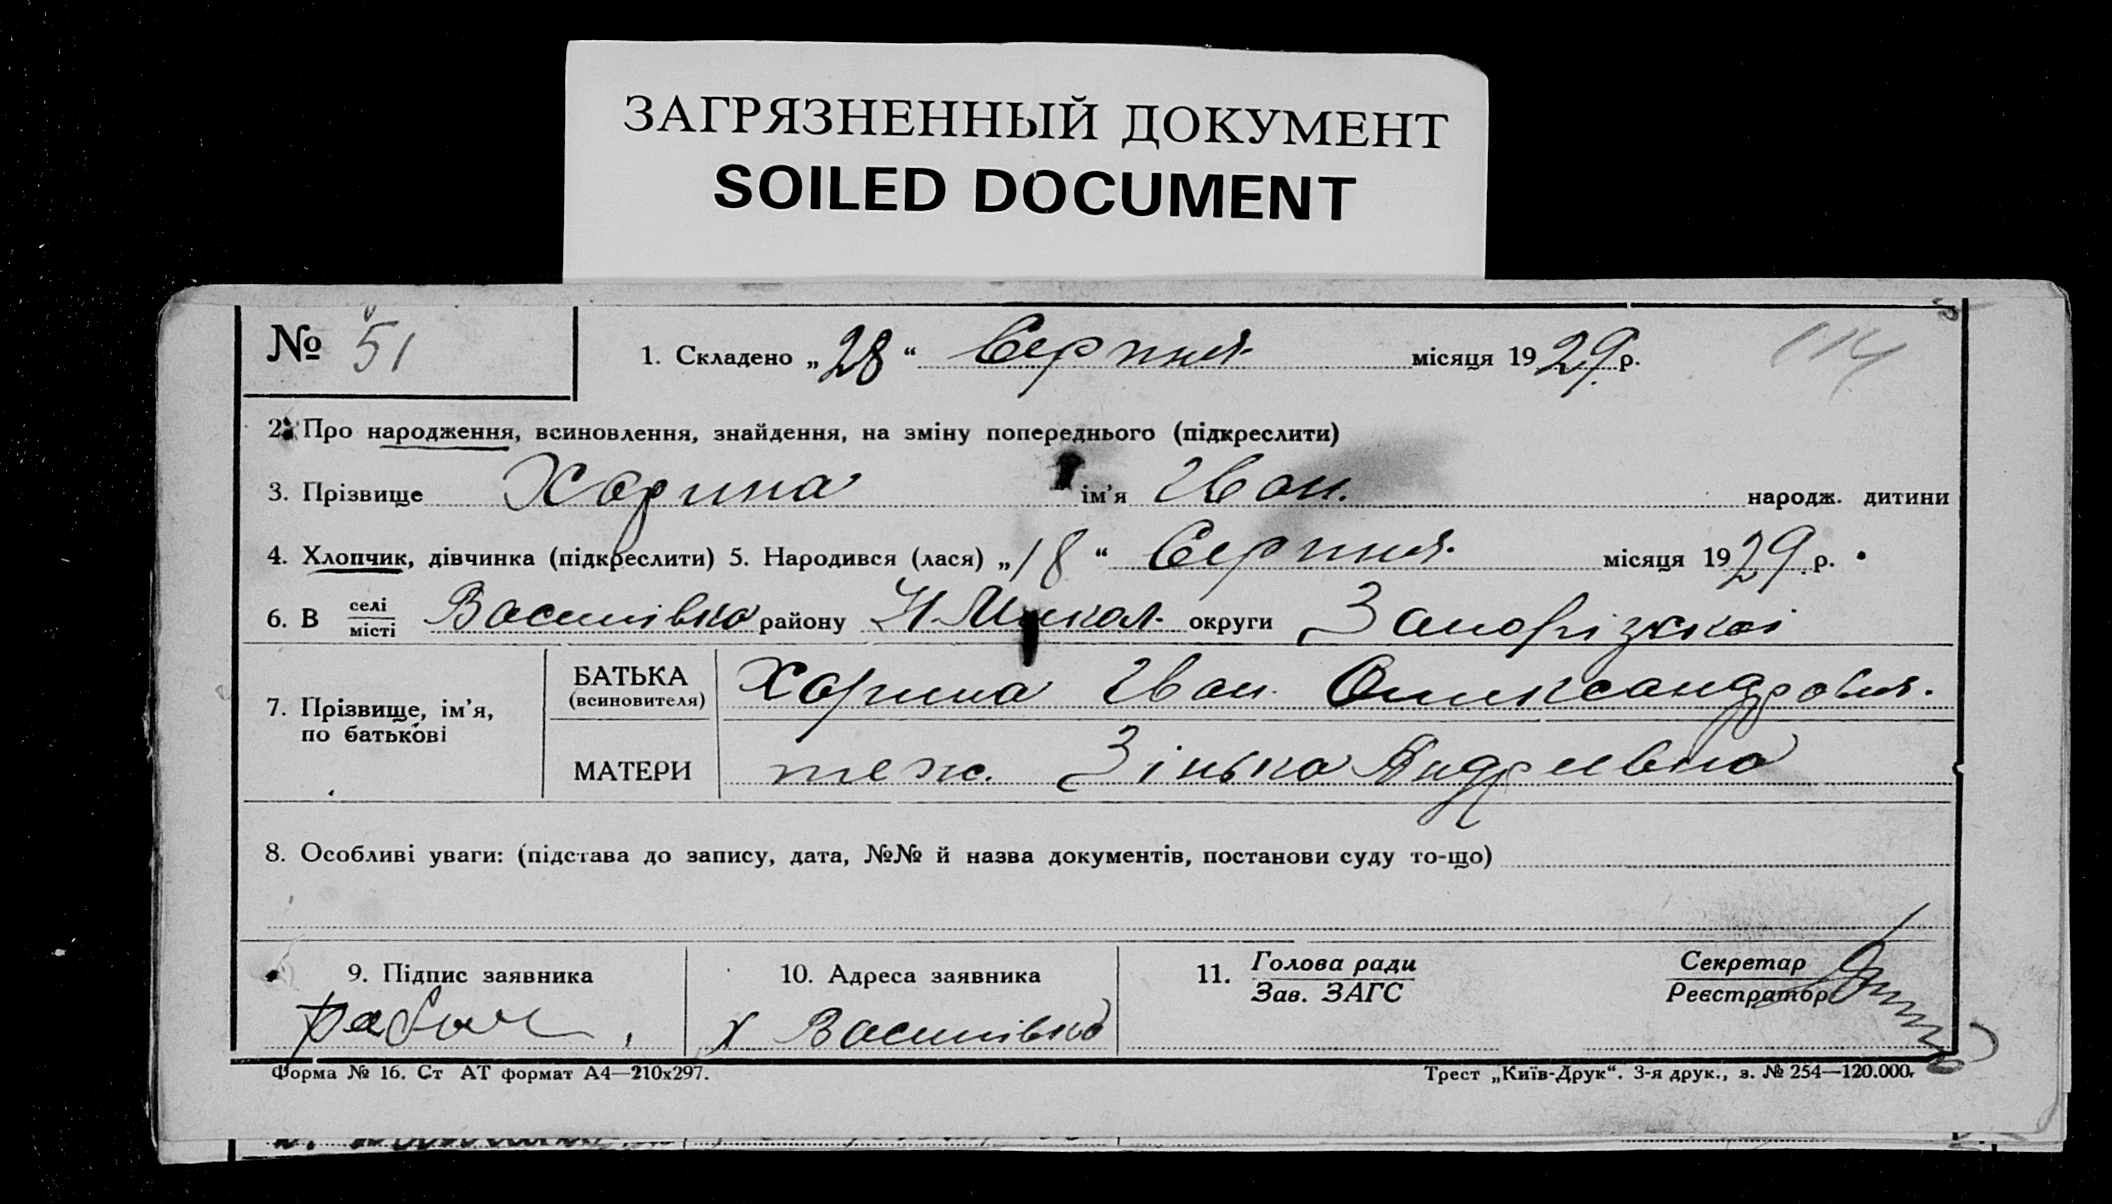 ЗАГРЯЗНЕННЫЙ ДОКУМЕНТ
SOILED DOCUMENT
№ 51
1. Складено „28“ Серпня місяця 1929 р.
114
2. Про народження, всиновлення, знайдення, на зміну попереднього (підкреслити)
3. Прізвище Хорина ім'я Іван. народж. дитини
4. Хлопчик, дівчинка (підкреслити) 5. Народився (лася) „18“ Серпня місяця 1929 р.
6. В селі/місті Василівка району Н. Микол. округи Запорізкої
7. Прізвище, ім'я, по батькові
БАТЬКА (всиновителя) Хорина Іван Олександрович.
МАТЕРИ теж. Зінька Андреевна
8. Особливі уваги: (підстава до запису, дата, №№ й назва документів, постанови суду то-що)
9. Підпис заявника
10. Адреса заявника
х Василівка
11. Голова ради
Зав. ЗАГС
Секретар
Реєстратор
Форма № 16. Ст АТ формат А4—210х297.
Трест „Київ-Друк“. 3-я друк., з. № 254—120.000.